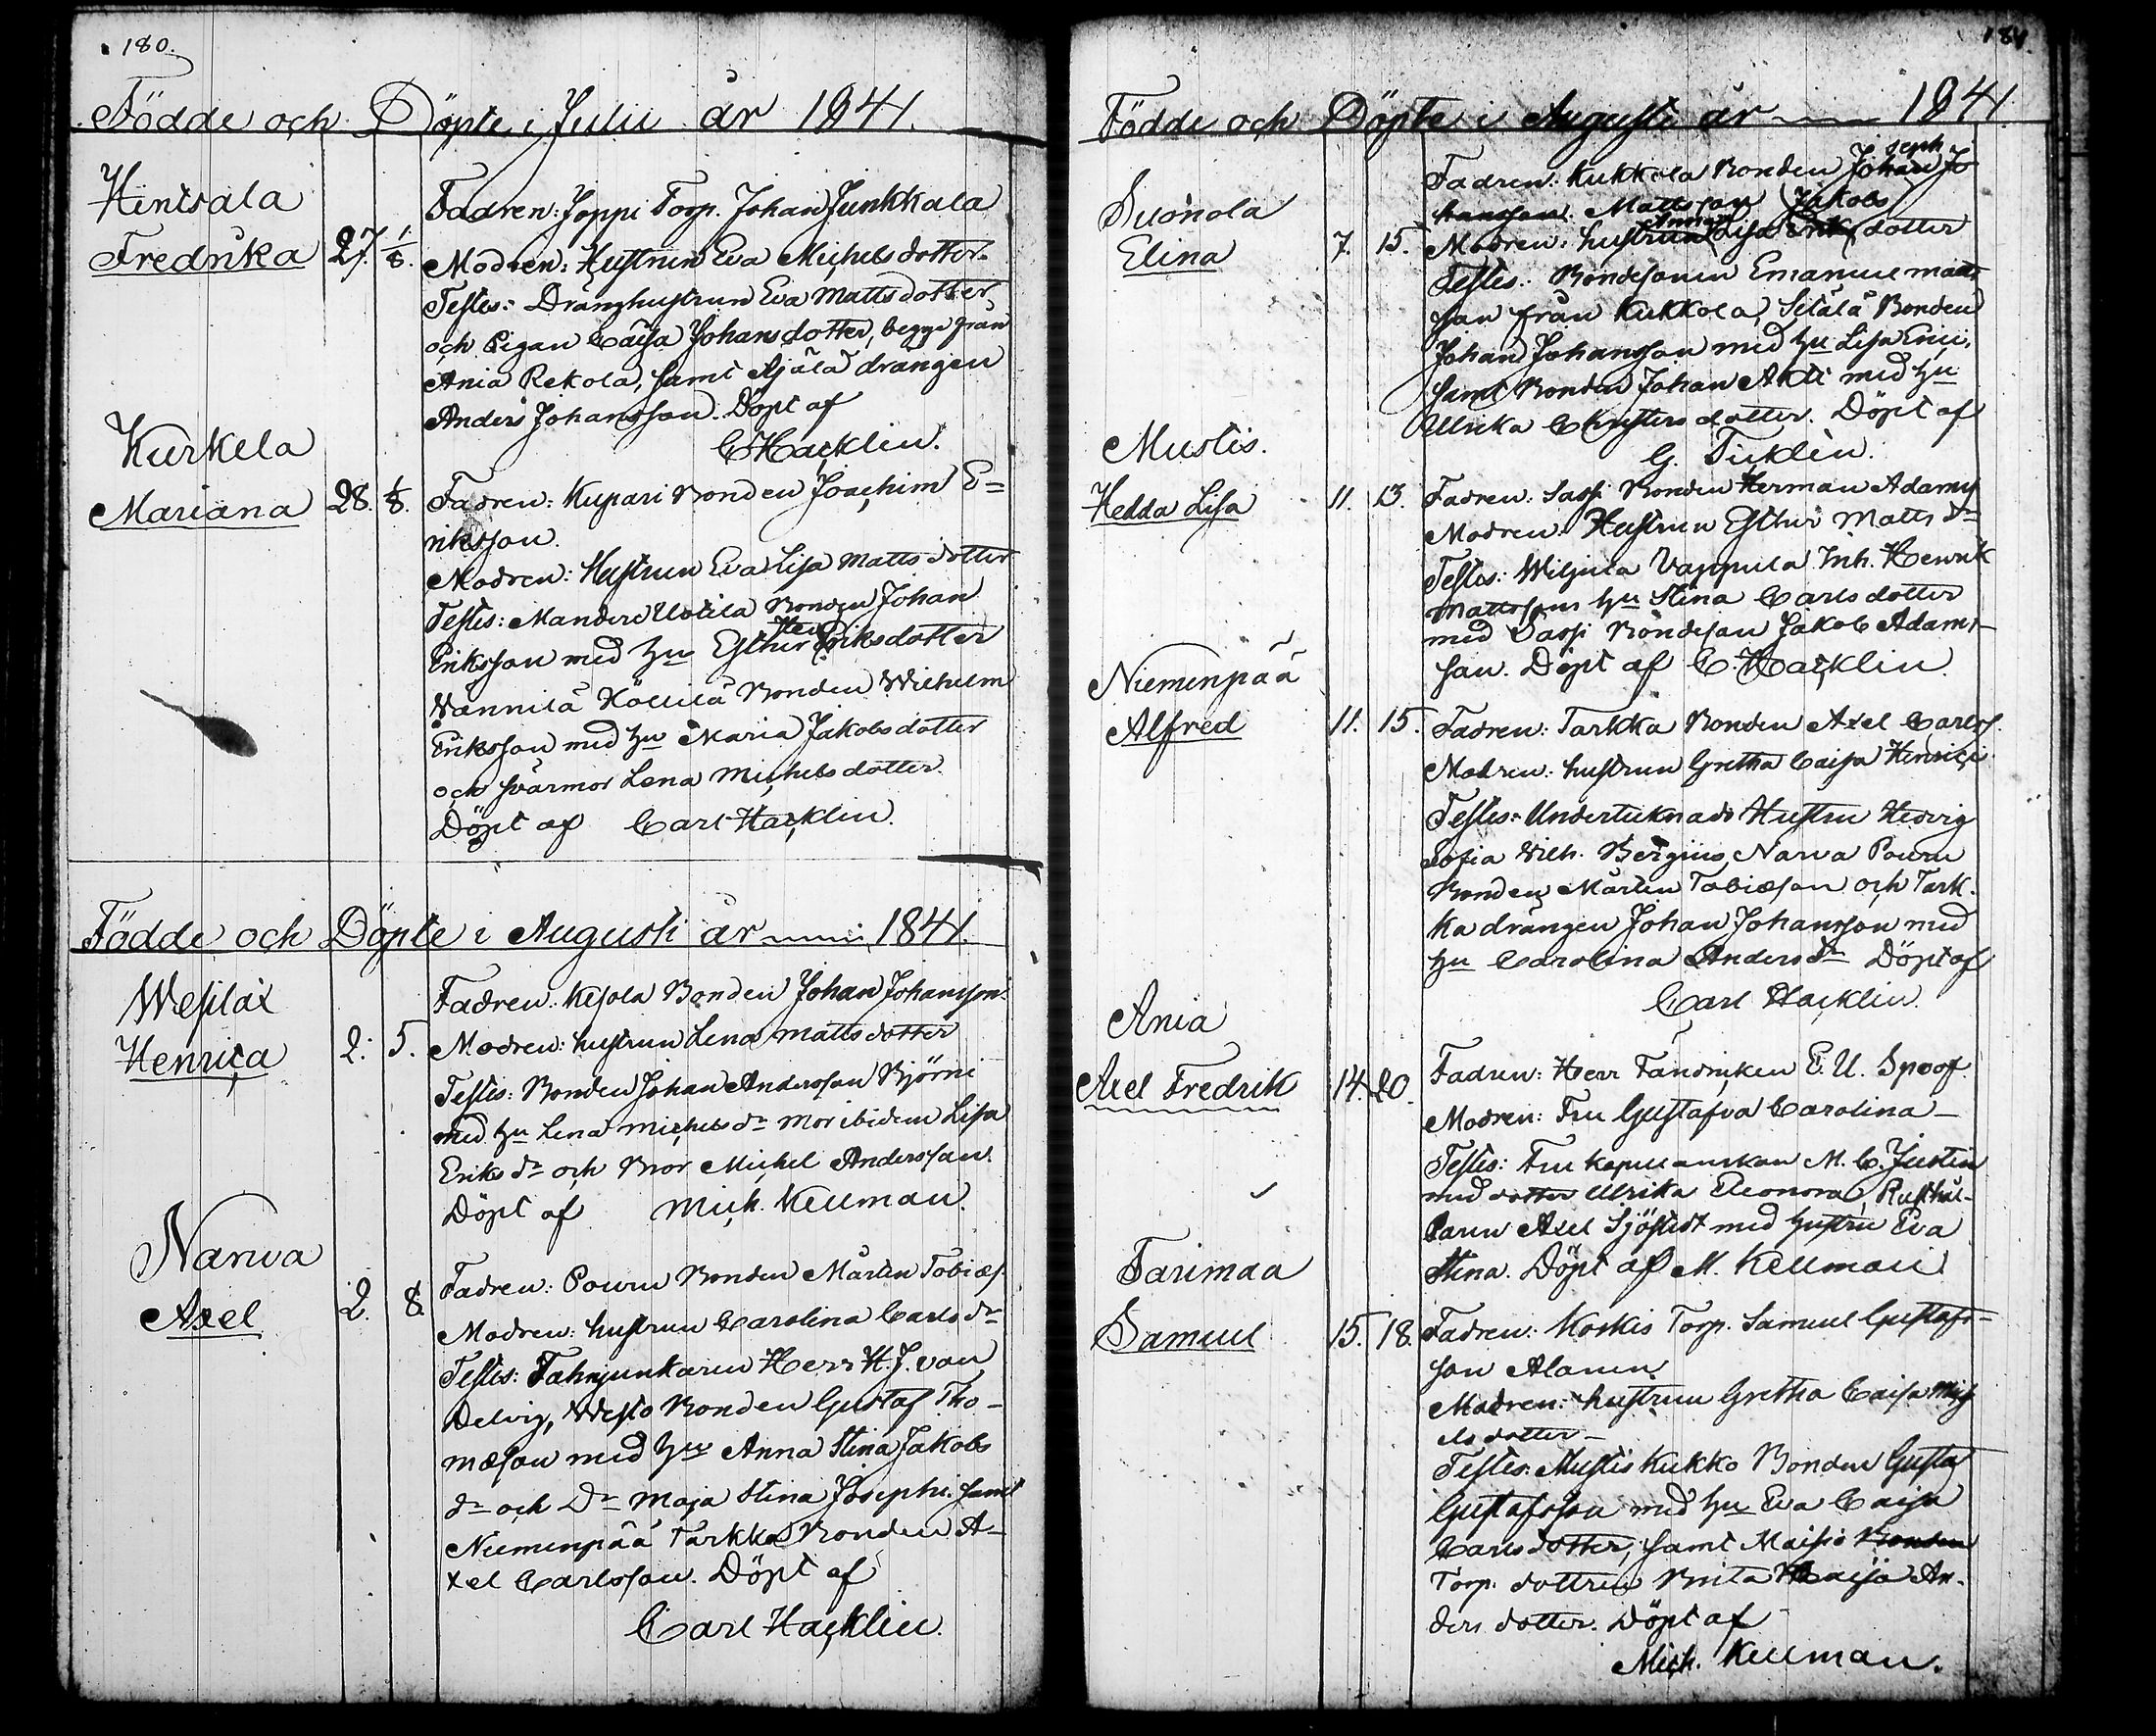 180.
Födde och Döpte i Julii år 1841.
Hintsala
Fredrika 27. 1/8.
Fadren: Joppi Torp. Johan Junkkala
Modren: Hustrun Eva Michelsdotter.
Testes: Dränghustrun Eva Mattsdotter,
och Pigan Caisa Johansdotter, begge från
Ania Rekola, samt Ajälä drängen
Anders Johansson. Döpt af
C Hacklin.
Kurkela
Mariana 28. 1/8.
Fadren: Kupari Bonden Joachim E=
riksson.
Modren: Hustrun Eva Lisa Mattsdotter
Testes: Mandere Uotila Bonden Johan
Eriksson med hu Esther Eriksdotter
Wännilä Höllilä Bonden Wilhelm
Eriksson med hu Maria Jakobsdotter
och svärmor Lena Michelsdotter.
Döpt af Carl Hacklin.
Födde och Döpte i Augusti år 1841.
Wesilax
Henrica 2. 5.
Fadren: Kesola Bonden Johan Johansson.
Modren: hustrun Lena Mattsdotter
Testes: Bonden Johan Andersson Björni
med hu Lena Michels dr Mor ibidem Lisa
Eriks dr och Bror Michel Andersson.
Döpt af Mich. Kellman.
Narva
Axel 2. 8.
Fadren: Pouru Bonden Mårten Tobiæs.
Modren: hustrun Carolina Carls dr
Testes: Fahnjunkaren Herr H. J. von
Delvig, Westo Bonden Gustaf Tho-
mæson med hu Anna Stina Jakobs
dr och dr Maja Stina Josephi. samt
Niemenpää Tarkka Bonden A-
xel Carlsson. Döpt af
Carl Hacklin.
181.
Födde och Döpte i Augusti år 1841.
Suonola
Elina 7. 15.
seph
Fadren: Kukkola Bonden Johan Jo
hansson. Mattsson Jakobs
Modren: hustrun Lisa dotter
Testes: Bondesonen Emanuel Matts
son från Kukkola, Setälä Bonden
Johan Johansson med hu Lisa Erici,
samt Bonden Johan Antti med hu
Ulrika Christersdotter. Döpt af
G. Ticklén.
Mustis.
Hedda Lisa 11. 13.
Fadren: Sassi Bonden Herman Adams
Modren: Hustrun Esther Matts dr
Testes: Wiljula Vappula Inh. Henrik
Mattssons hu Stina Carlsdotter
med Sassi Bondeson Jakob Adams-
son. Döpt af C. Hacklin.
Niemenpää
Alfred 11. 15.
Fadren: Tarkka Bonden Axel Carlss.
Modren: hustrun Gretha Caisa Henrici.
Testes: Undertecknads Hustru Hedvig
Sofia Wilh. Bergius, Narva Pouru
Bonden Mårten Tobiæson och Tark-
ka drängen Johan Johansson med
hu Carolina Anders dr Döpt af
Carl Hacklin.
Ania
Axel Fredrik 14. 20.
Fadren: Herr Fändriken E. U. Spoof.
Modren: Fru Gustafva Carolina —
Testes: Fru Kapellanskan M. C. Justin
med dotter Ulrika Eleonora, Rusthål-
laren Axel Sjöstedt med hustru Eva
Stina. Döpt af M. Kellman
Tarimaa
Samuel 15. 18.
Fadren: Koskis Torp. Samuel Gustafs-
son Alanen.
Modren: hustrun Gretha Caisa Mich
elsdotter —
Testes: Mustis Kukko Bonden Gustaf
Gustafsson med hu Eva Caisa
Carlsdotter, samt Maisio Bonden
Torp. dottren Brita Caisa An-
dersdotter. Döpt af
Mich. Kellman.